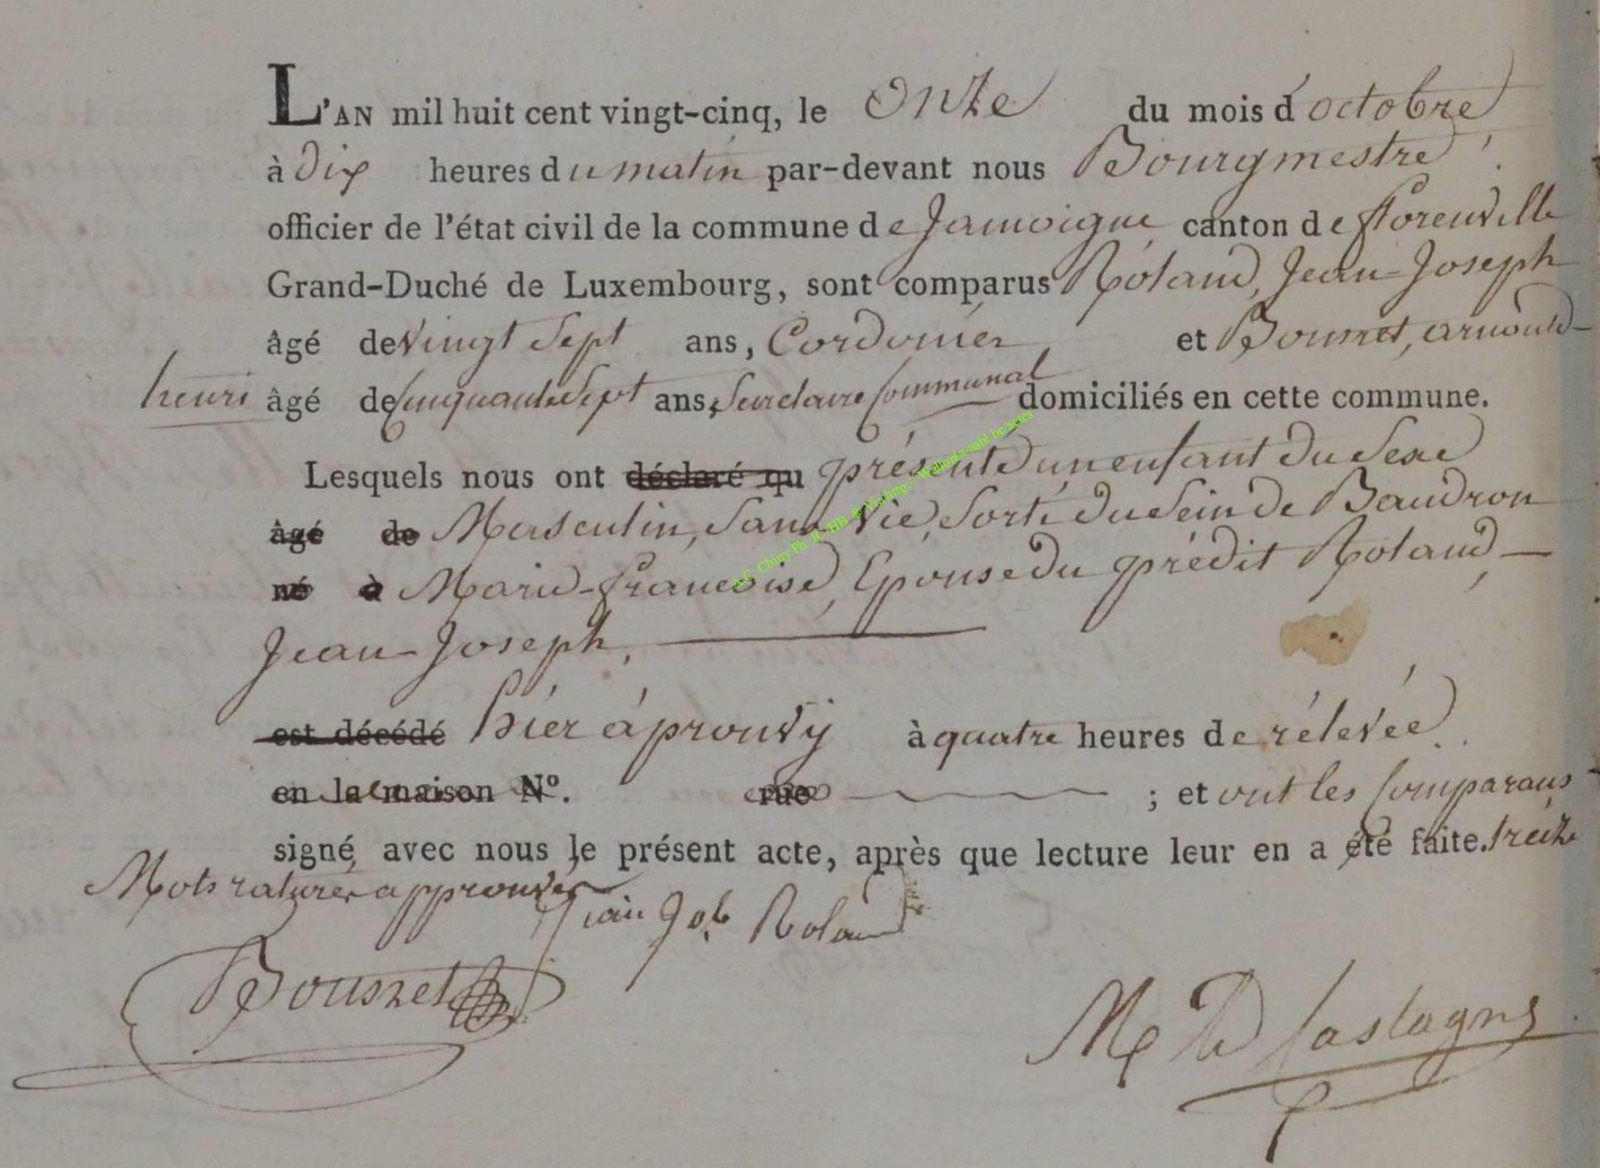 L'AN mil huit cent vingt-cinq, le onze du mois d'octobre
à dix heures du matin par-devant nous Bourgmestre
officier de l'état civil de la commune de Jamoigne canton de florenville
Grand-Duché de Luxembourg, sont comparus Roland, Jean-Joseph
âgé de vingt sept ans, Cordonier et Bousret, arnould-
henri âgé de Cinquante Sept ans, Secretaire Communal domiciliés en cette commune.
Lesquels nous ont déclaré qu présenté un enfant du Sexe
âgé de Masculin, Sans Vie, Sorti du Sein de Baudron
né à Marie-françoise, Epouse du prédit Roland,
Jean-Joseph,
est décédé hier à prouvy à quatre heures de rélevée
en la maison N°. rue ; et ont les Comparans
signé avec nous le présent acte, après que lecture leur en a été faite. treize
Mots raturés approuvés
Jean Jos. Roland
Bousret
M D Lastagne
A.C. Chiny Ph JL /HB & Via http://Wallonia-asbl.be/actes